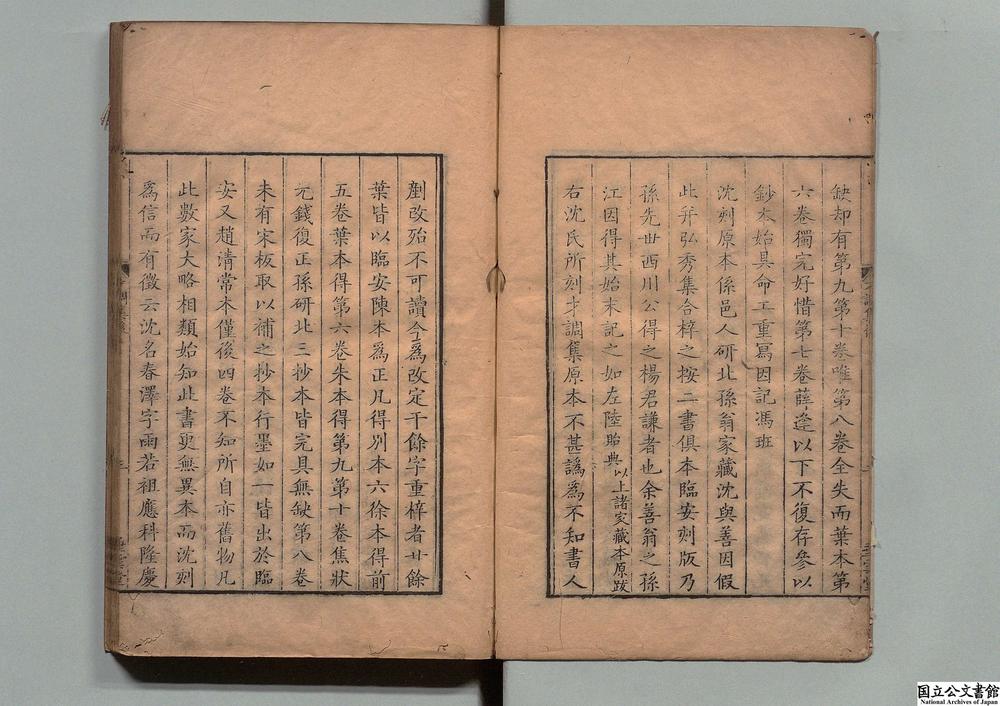 缺却有第九第十卷唯第八卷全失而葉本第
六卷獨完好惜第七卷薛逢以下不復存參以
鈔本始具命工重寫因記馮班
沈刻原本係邑人研北孫翁家藏沈與善因假
此并弘秀集合梓之按二書俱本臨安刻版乃
孫先世西川公得之楊君謙者也余善翁之孫
江因得其始末記之如左陸貽典以上諸家藏本原跋
右沈氏所刻才調集原本不甚譌為不知書人
剷改殆不可讀今為改定千餘字重梓者廿餘
葉皆以臨安陳本為正凡得別本六徐本得前
五卷葉本得第六卷朱本得第九第十卷焦狀
元錢復正孫研北三抄本皆完具無缺第八卷
未有宋板取以補之抄本行墨如一皆出於臨
安又趙清常本僅後四卷不知所自亦舊物凡
此數家大略相類始知此書更無異本而沈刻
為信而有徵云沈名春澤字雨若祖應科隆慶
国立公文書館
National Archives of Japan